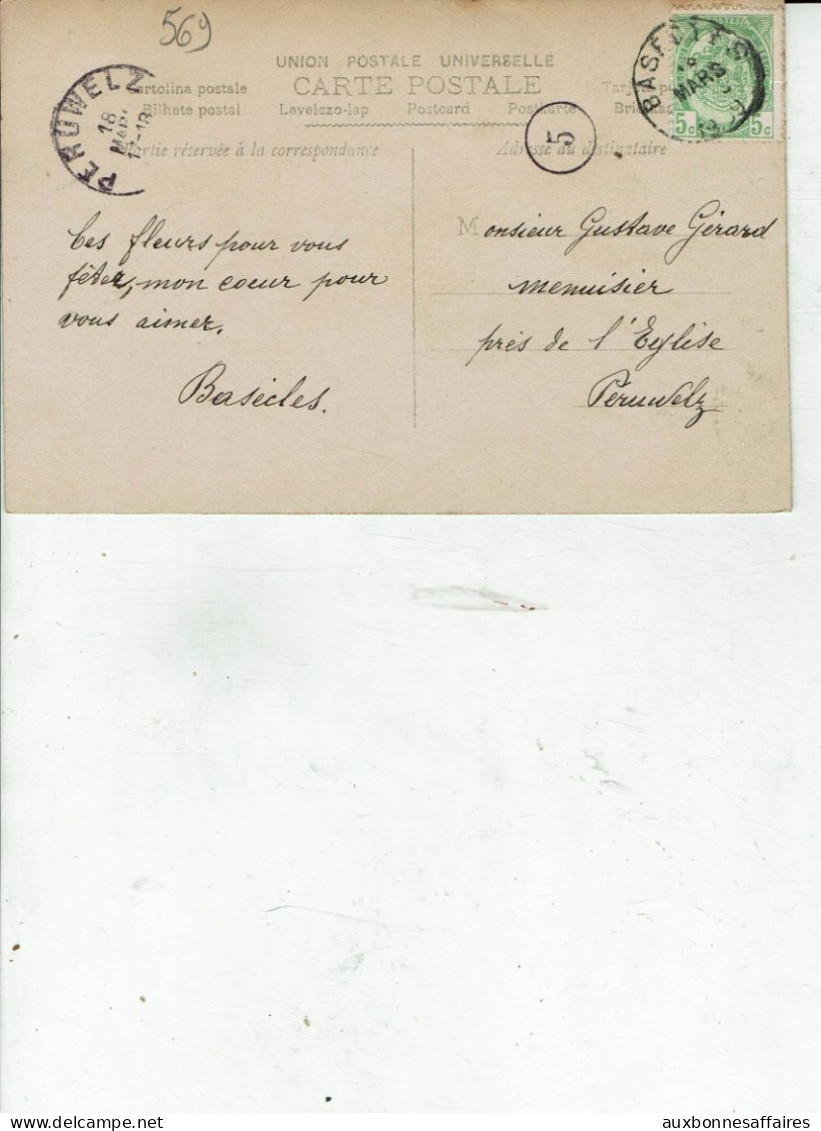 569
UNION POSTALE UNIVERSELLE
Cartolina postale CARTE POSTALE
Bilhete postal Levelezo-lap Postcard Postkarte
PERUWELZ
18
BASECLES
MARS
1909
5c 5c
5
Partie réservée à la correspondance
Adresse du destinataire
Ces fleurs pour vous
fêter, mon coeur pour
vous aimer.
Basècles.
Monsieur Gustave Gérard
menuisier
près de l'Eglise
Peruwelz
auxbonnesaffaires